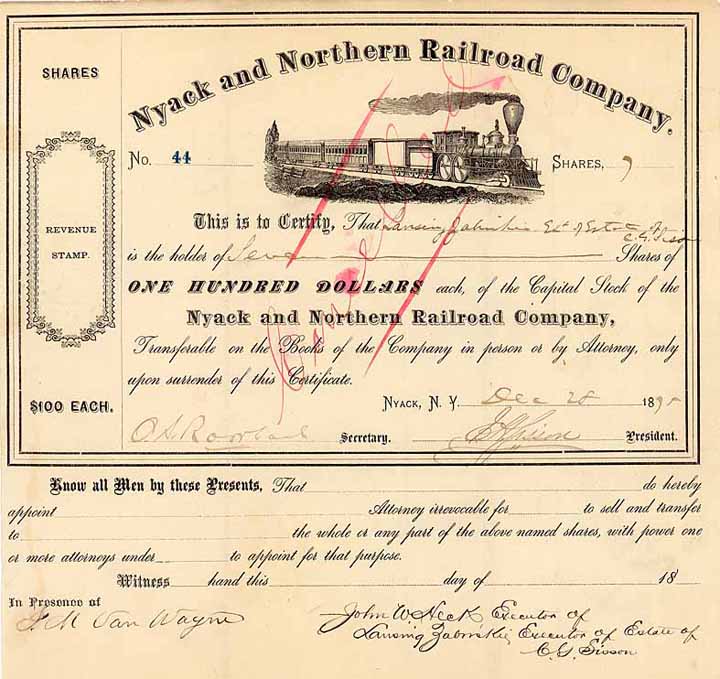 Nyack and Northern Railroad Company.
SHARES
No. 44
SHARES, 7
REVENUE
STAMP.
This is to Certify, That Lansing Zabriskie Ex. of Estate of
C. G. Sisson
is the holder of Seven Shares of
ONE HUNDRED DOLLARS each, of the Capital Stock of the
Nyack and Northern Railroad Company,
Transferable on the Books of the Company in person or by Attorney, only
upon surrender of this Certificate.
Cancelled
$100 EACH.
NYACK, N. Y. Dec 28 1895
Secretary. Sisson President.
Know all Men by these Presents, That do hereby
appoint Attorney irrevocable for to sell and transfer
to the whole or any part of the above named shares, with power one
or more attorneys under to appoint for that purpose.
Witness hand this day of 18
In Presence of
M Van Wayne
John W Heck Executor of
Lansing Zabriskie, Executor of Estate of
C. G. Sisson